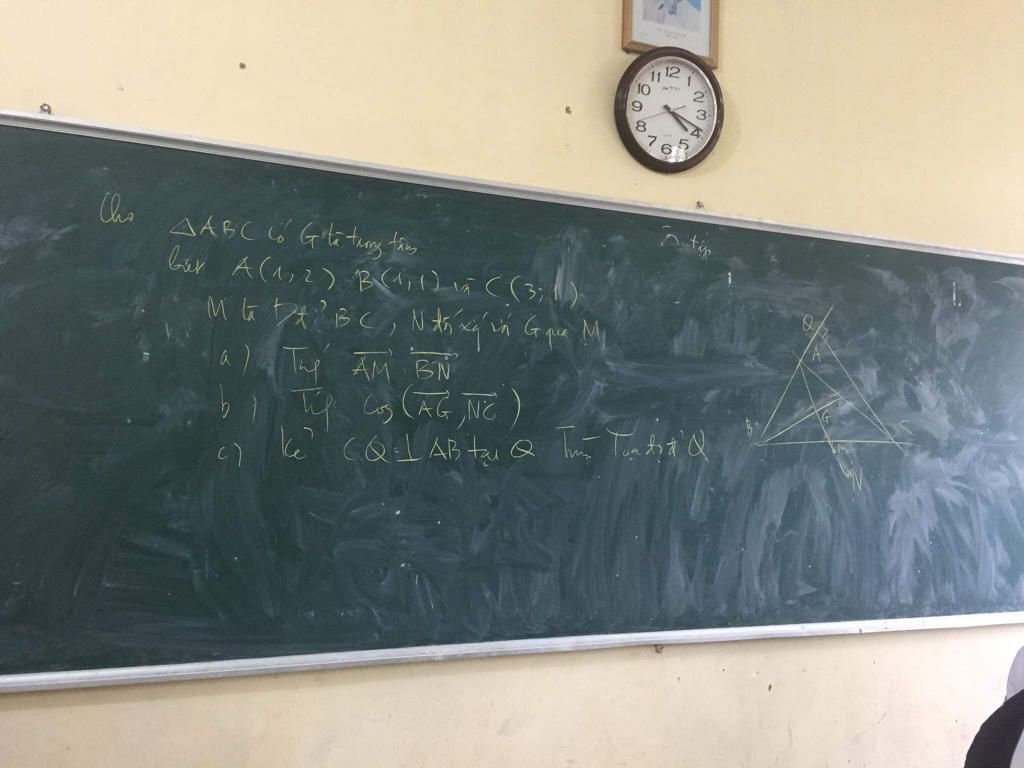 Cho △ABC có G là trọng tâm
biết A(1,2) B(1,1) và C(3;1)
M là Đ' BC, N đ/xứng với G qua M
a) Tính AM . BN
b) Cos (AG, NC)
c) Kẻ CQ ⊥ AB tại Q Tìm Tọa độ Q
Q
A
G
B
C
M
N
12
1
2
3
4
5
6
7
8
9
10
11